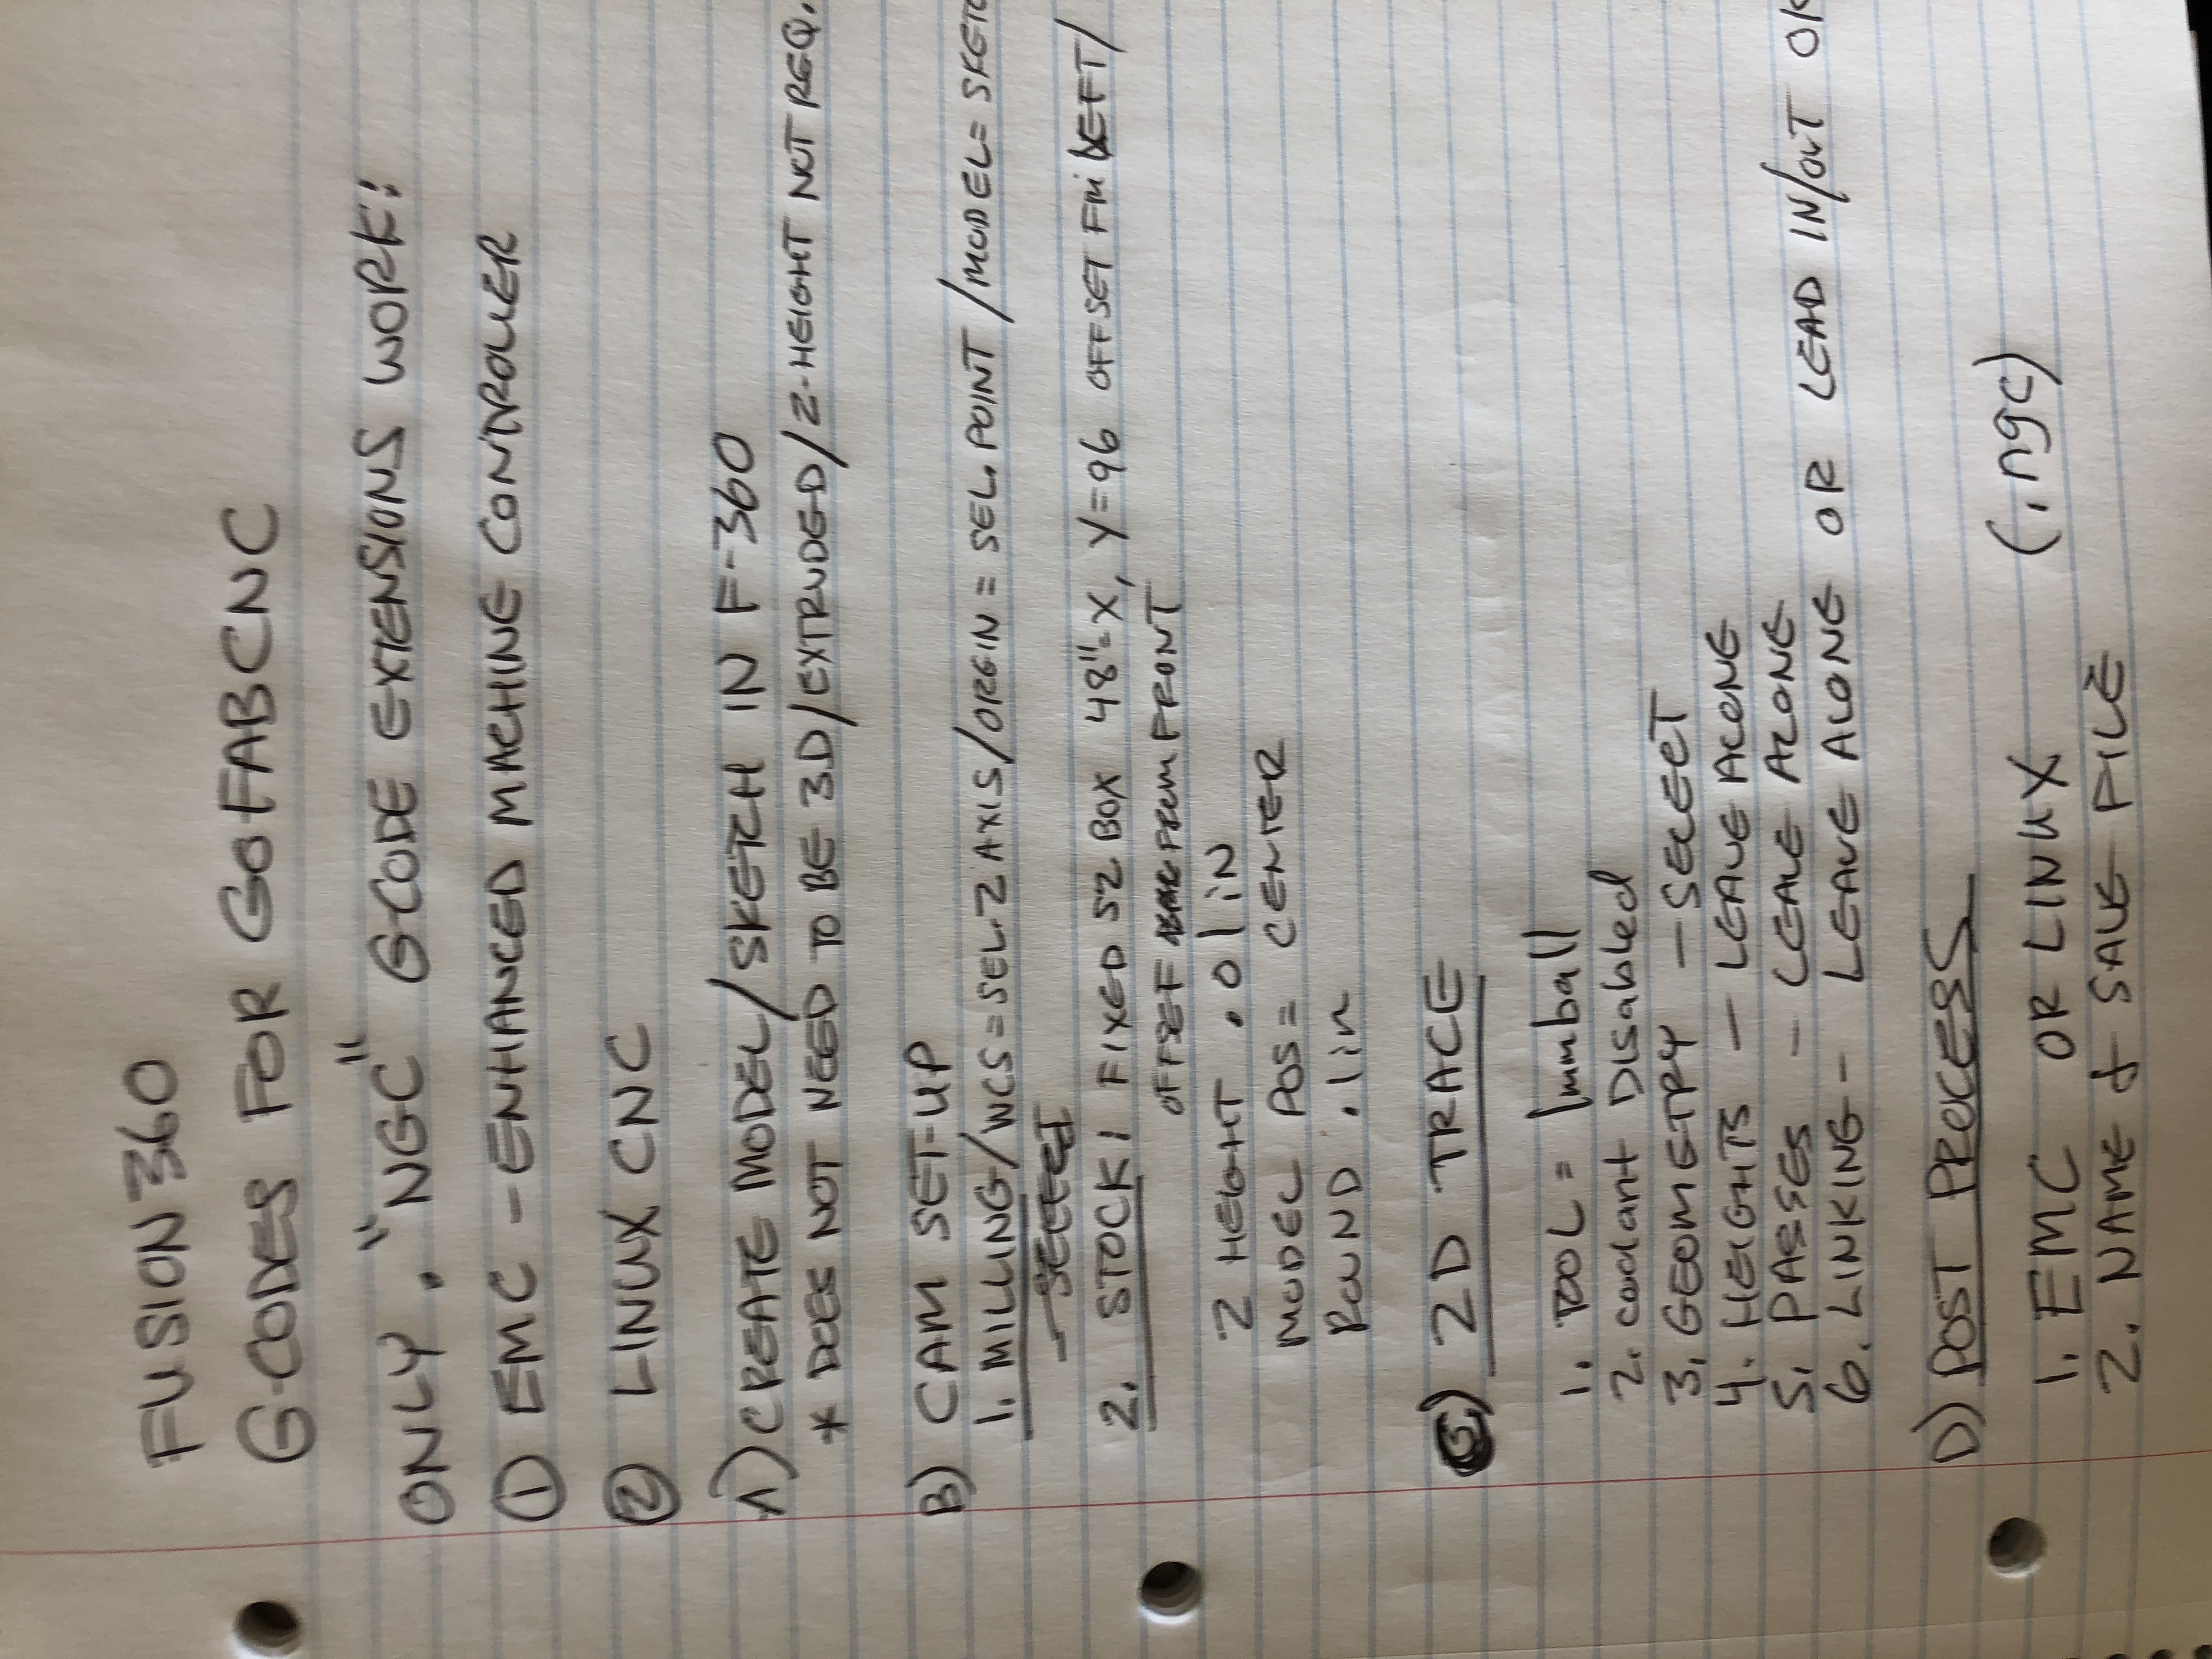 FUSION 360
G-CODES FOR GOFABCNC
ONLY . "NGC" G-CODE EXTENSIONS WORK!
① EMC - ENHANCED MACHINE CONTROLLER
② LINUX CNC
A) CREATE MODEL/SKETCH IN F-360
* DOES NOT NEED TO BE 3D/EXTRUDED/Z-HEIGHT NOT REQ.
B) CAM SET-UP
1. MILLING/WCS=SEL. Z AXIS/ORIGIN = SEL. POINT/MODEL= SKETC
- SELECT
2. STOCK: FIXED SZ BOX 48"=X, Y=96 OFFSET FM LEFT/
OFFSET FROM FRONT
Z HEIGHT .01 IN
MODEL POS= CENTER
ROUND .1in
C) 2D TRACE
1. TOOL = 1mmball
2. coolant Disabled
3. GEOMETRY - SELECT
4. HEIGHTS - LEAVE ALONE
5. PASSES - LEAVE ALONE
6. LINKING - LEAVE ALONE OR LEAD IN/OUT OK
D) POST PROCESS
1. EMC OR LINUX (.ngc)
2. NAME & SAVE FILE